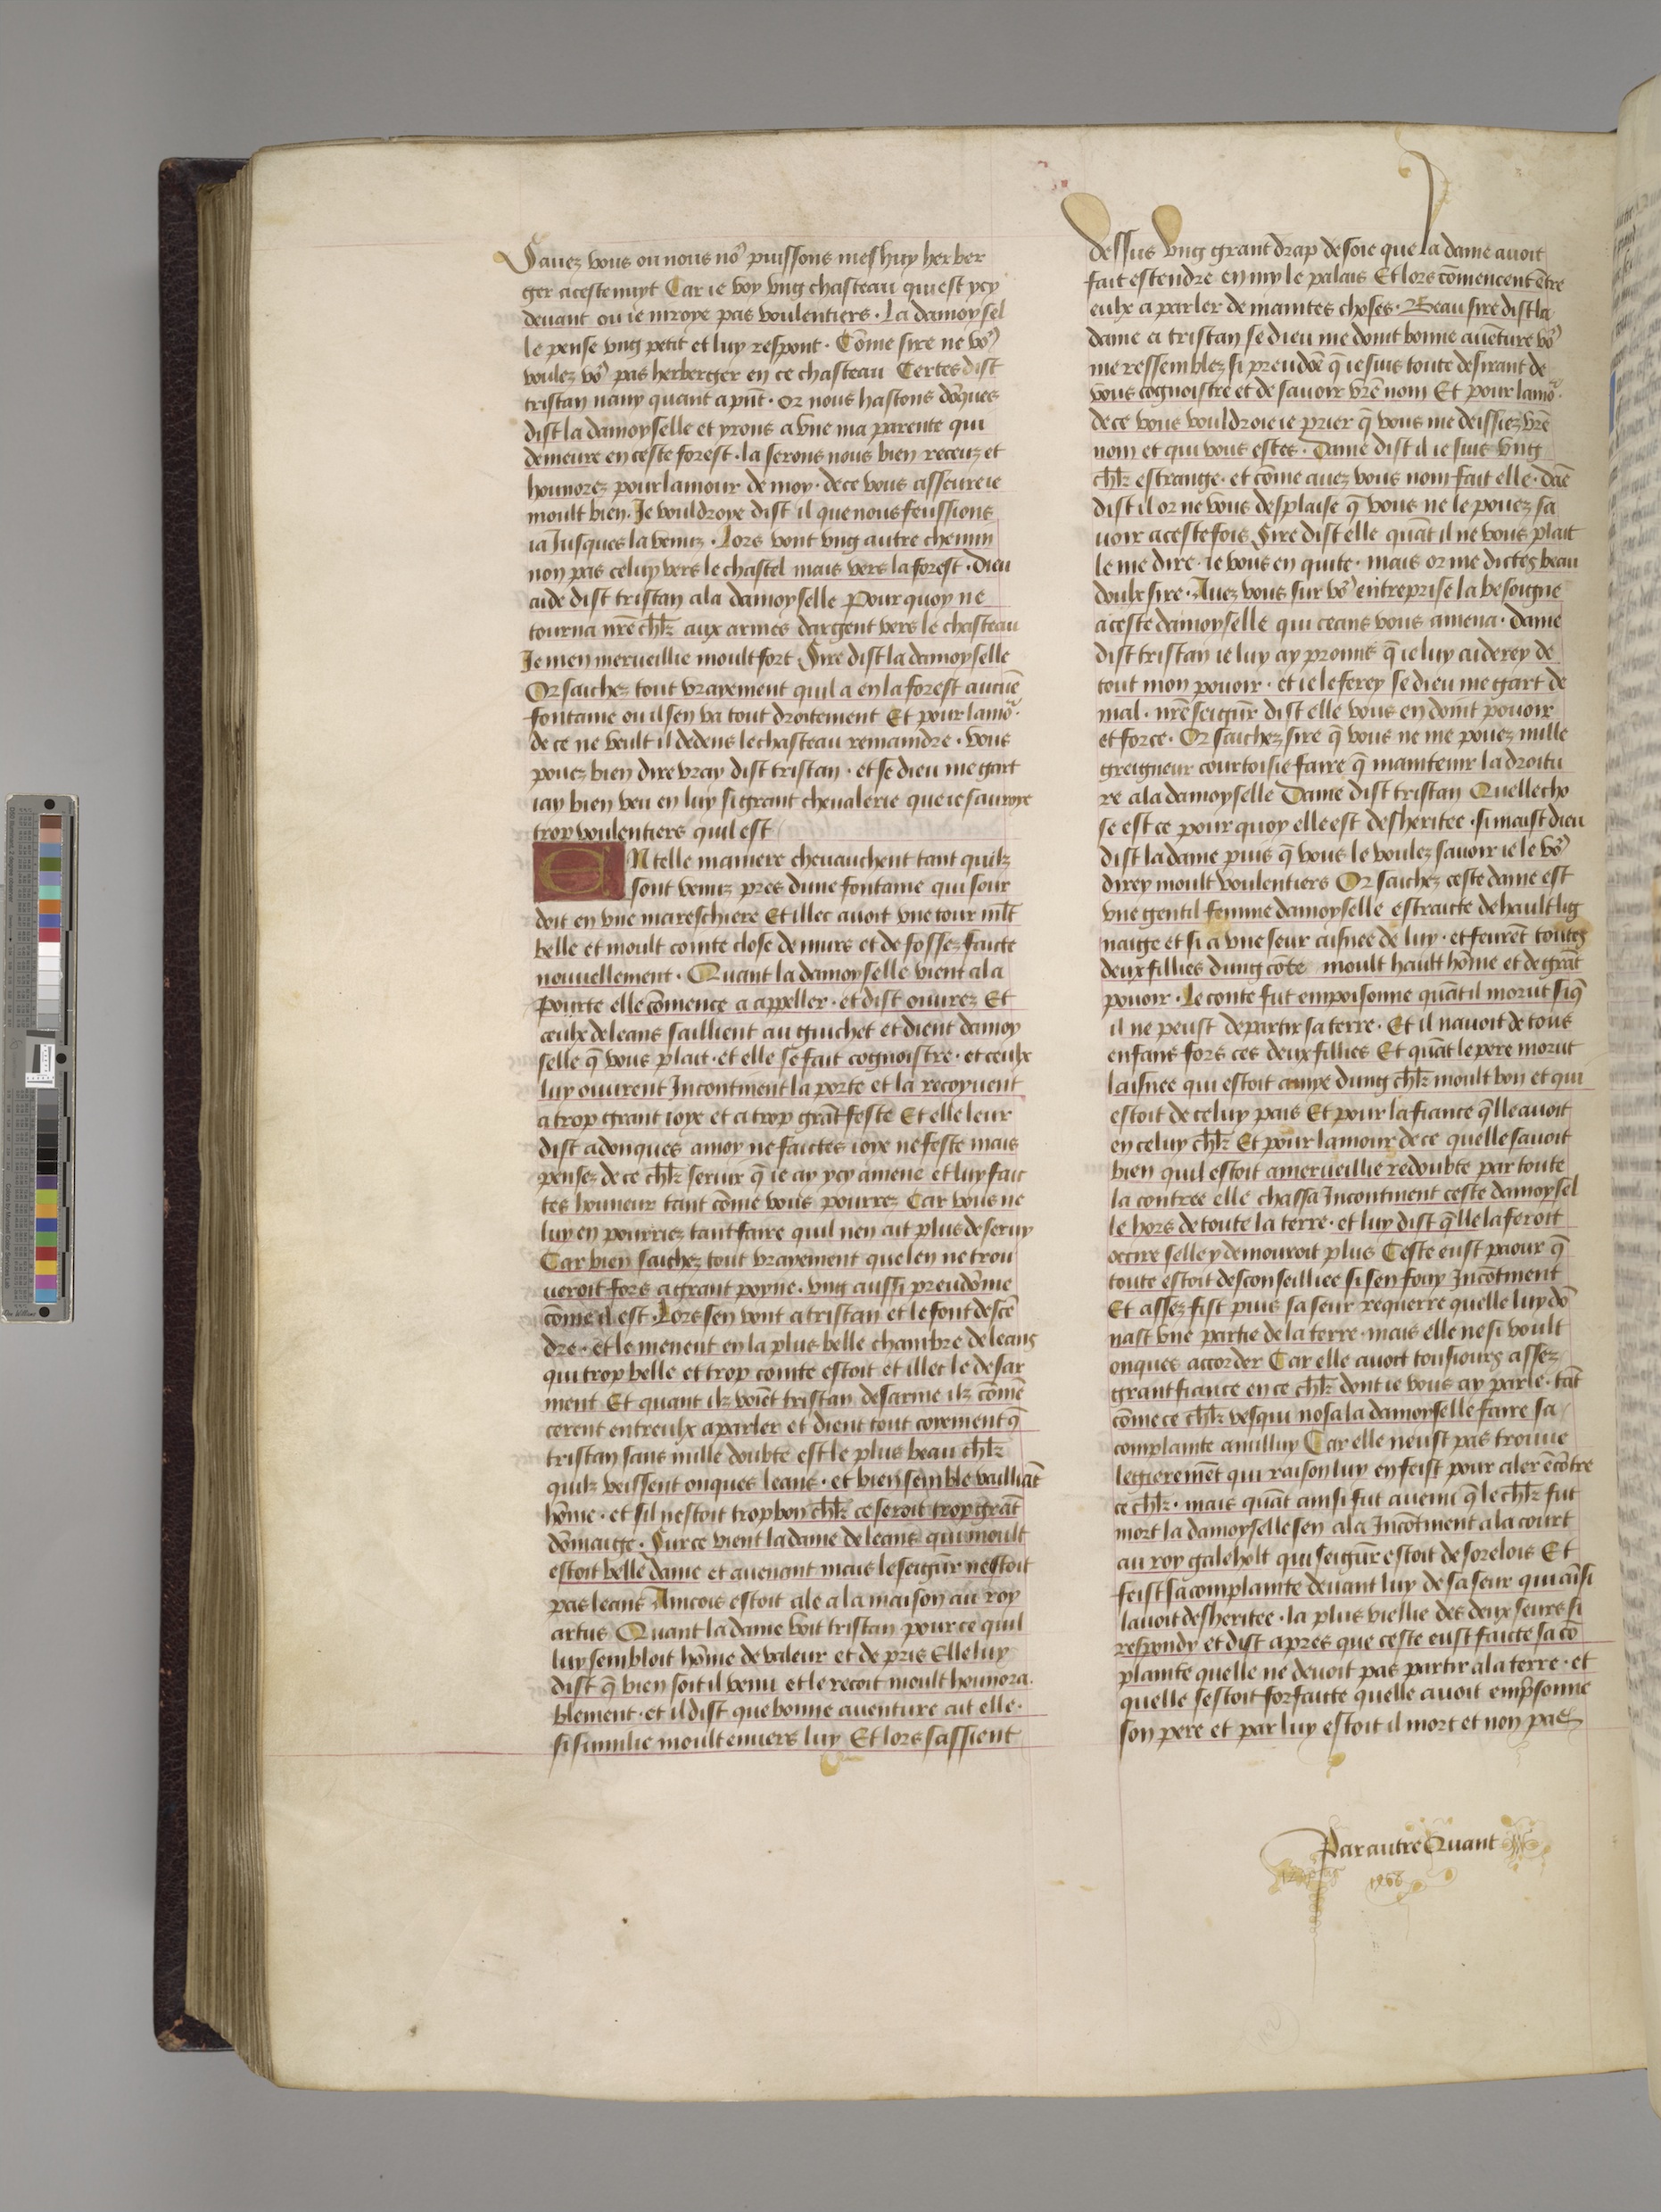 Sauez vous ou nous no9 puissons meshuy herber
ger acestenuyt Car ie voy vng chasteau qui est ycy
deuant ou ie niroye pas voulentiers · La damoysel
le pense vng petit et luy respont · Cōme sire ne vo9
voulez vo9 pas herberger en ce chasteau Certes dist
tristan nany quant apn̄t · Or nous hastons dōques
dist la damoyselle et yrons a vne ma parente qui
demeure en ceste forest · la serons nous bien receuz et
honnorez pour lamour de moy · de ce vous asseure ie
moult bien · Je vouldroye dist il que nous feussions
ia Jusques la venuz · Lors vont vng autre chemin
non pas celuy vers le chastel mais vers la forest · Dieu
aide dist tristan ala damoyselle Pour quoy ne
tourna nr̄e chl̄r aux armes dargent vers le chasteau
Je men merueillie moult fort Sire dist la damoyselle
Or saichez tout vrayement quil a en la forest aucūe
fontaine ou il sen va tout droitement Et pour lamor̃
de ce ne veult il dedens le chasteau remaindre · vous
pouez bien dire vray dist tristan · et se dieu me gart
iay bien veu en luy si grant cheualerie que ie sauroye
trop voulentiers quil est
EN telle maniere cheuauchent tant quilz
sont venuz pres dune fontaine qui sour
doit en vne mareschiere Et illec auoit vne tour ml̄t
belle et moult cointe close de murs et de fossez faicte
nouuellement · Quant la damoyselle vient ala
Pourte elle cōmence a appeller · et dist ouurez Et
ceulx de leans saillient au guichet et dient damoy
selle q̄ vous plait · et elle se fait cognoistre · et ceulx
luy ouurent Incontinent la porte et la recoyuent
a trop grant ioye et a trop grāt feste Et elle leur
dist adonques amoy ne faictes ioye ne feste mais
pensez de ce chl̄r seruir q̄ ie ay ycy amene et luy faic
tes honneur tant cōme vous pourrez Car vous ne
luy en pourriez tant faire quil nen ait plus deseruy
Car bien saichez tout vrayement que len ne trou
ueroit fors a grant poyne · vng aussi preudōme
cōme il est · Lors sen vont a tristan et le font descē
dre · et le menent en la plus belle chambre de leans
qui trop belle et trop cointe estoit et illec le desar
ment Et quant ilz voiēt tristan desarme ilz cōmē
cerent entreulx a parler et dient tout coyement q̄
tristan sans nulle doubte est le plus beau chl̄r
quilz veissent onques leans · et bien semble vailliāt
hōme · et sil nestoit trop bon chl̄r ce seroit trop grāt
dōmaige · Sur ce vient la dame de leans qui moult
estoit belle dame et auenant mais le seigūr nestoit
pas leans Aincois estoit ale a la maison au roy
artus Quant la dame voit tristan pource quil
luy sembloit hōme de valeur et de pris Elle luy
dist q̄ bien soit il venu et le recoit moult honnora
blement · et il dist que bonne auenture ait elle ·
si sumilie moult enuers luy Et lors sassient
dessus vng grant drap de soie que la dame auoit
fait estendre en my le palais Et lors cōmencent ētre
eulx a parler de maintes choses · Beau sire dist la
dame a tristan se dieu me doint bonne auēture vo9
me ressemblez si preudōe q̄ ie suis toute desirant de
vous cognoistre et de sauoir vr̄e nom Et pour lamor̃
de ce vous vouldroie ie prier q̄ vous me deissiez vr̄e
nom et qui vous estes · Dame dist il ie suis vng
chl̄r estrange · et cōme auez vous nom fait elle · dāe
dist il or ne vous desplaise q̄ vous ne le pouez sa
uoir aceste fois Sire dist elle quāt il ne vous plait
le me dire · ie vous en quite · mais or me dictes beau
doulx sire · Auez vous sur vo9 entreprise la besoigne
a ceste damoyselle qui ceans vous amena · Dame
dist tristan ie luy ay promis q̄ ie luy aiderey de
tout mon pouoir · et ie le ferey se dieu me gart de
mal · nr̄e seigūr dist elle vous en doint pouoir
et force · Or saichez sire q̄ vous ne me pouez nulle
greigneur courtoisie faire q̄ maintenir la droitu
re ala damoyselle Dame dist tristan Quelle cho
se est ce pour quoy elle est desheritee · si maist dieu
dist la dame puis q̄ vous le voulez sauoir ie le vo9
direy moult voulentiers Or saichez ceste dame est
vne gentil femme damoyselle estraicte de hault lig
naige et si a vne seur aisnee de luy · et feurēt toutes
deux fillies dung cōte moult hault hōme et de grāt
pouoir · Le conte fut empoisonne quāt il morut siq̄
il ne peust departir sa terre · Et il nauoit de tous
enfans fors ces deux fillies Et quāt le pere morut
laisnee qui estoit amye dung chl̄r moult bon et qui
estoit de celuy pais Et pour la fiance q̄lle auoit
en celuy chl̄r Et pour lamour de ce quelle sauoit
bien quil estoit amerueillie redoubte par toute
la contree elle chassa Incontinent ceste damoysel
le hors de toute la terre · et luy dist q̄lle la feroit
occire selle y demouroit plus Ceste eust paour q̄
toute estoit desconseilliee si sen fouy Incōtinent
Et assez fist puis sa seur requerre quelle luy dō
nast vne partie de la terre · mais elle ne si voult
onques accorder Car elle auoit tousiours assez
grant fiance en ce chl̄r dont ie vous ay parle · tāt
cōme ce chl̄r vesqui nosa la damoyselle faire sa
complainte anulluy Car elle neust pas trouue
legieremēt qui raison luy en feist pour aler ēcōtre
ce chl̄r · mais quāt ainsi fut auenu q̄ le chl̄r fut
mort la damoyselle sen ala Incōtinent ala court
au roy galeholt qui seigūr estoit de sorelois Et
feist sa complainte deuant luy de sa seur qui aīsi
lauoit desheritee · la plus viellie des deux seurs si
respondy et dist apres que ceste eust faicte sa cō
plainte quelle ne deuoit pas partir ala terre · et
quelle sestoit forfaicte quelle auoit emp̄sonne
son pere et par luy estoit il mort et non pas
Par autre Quant